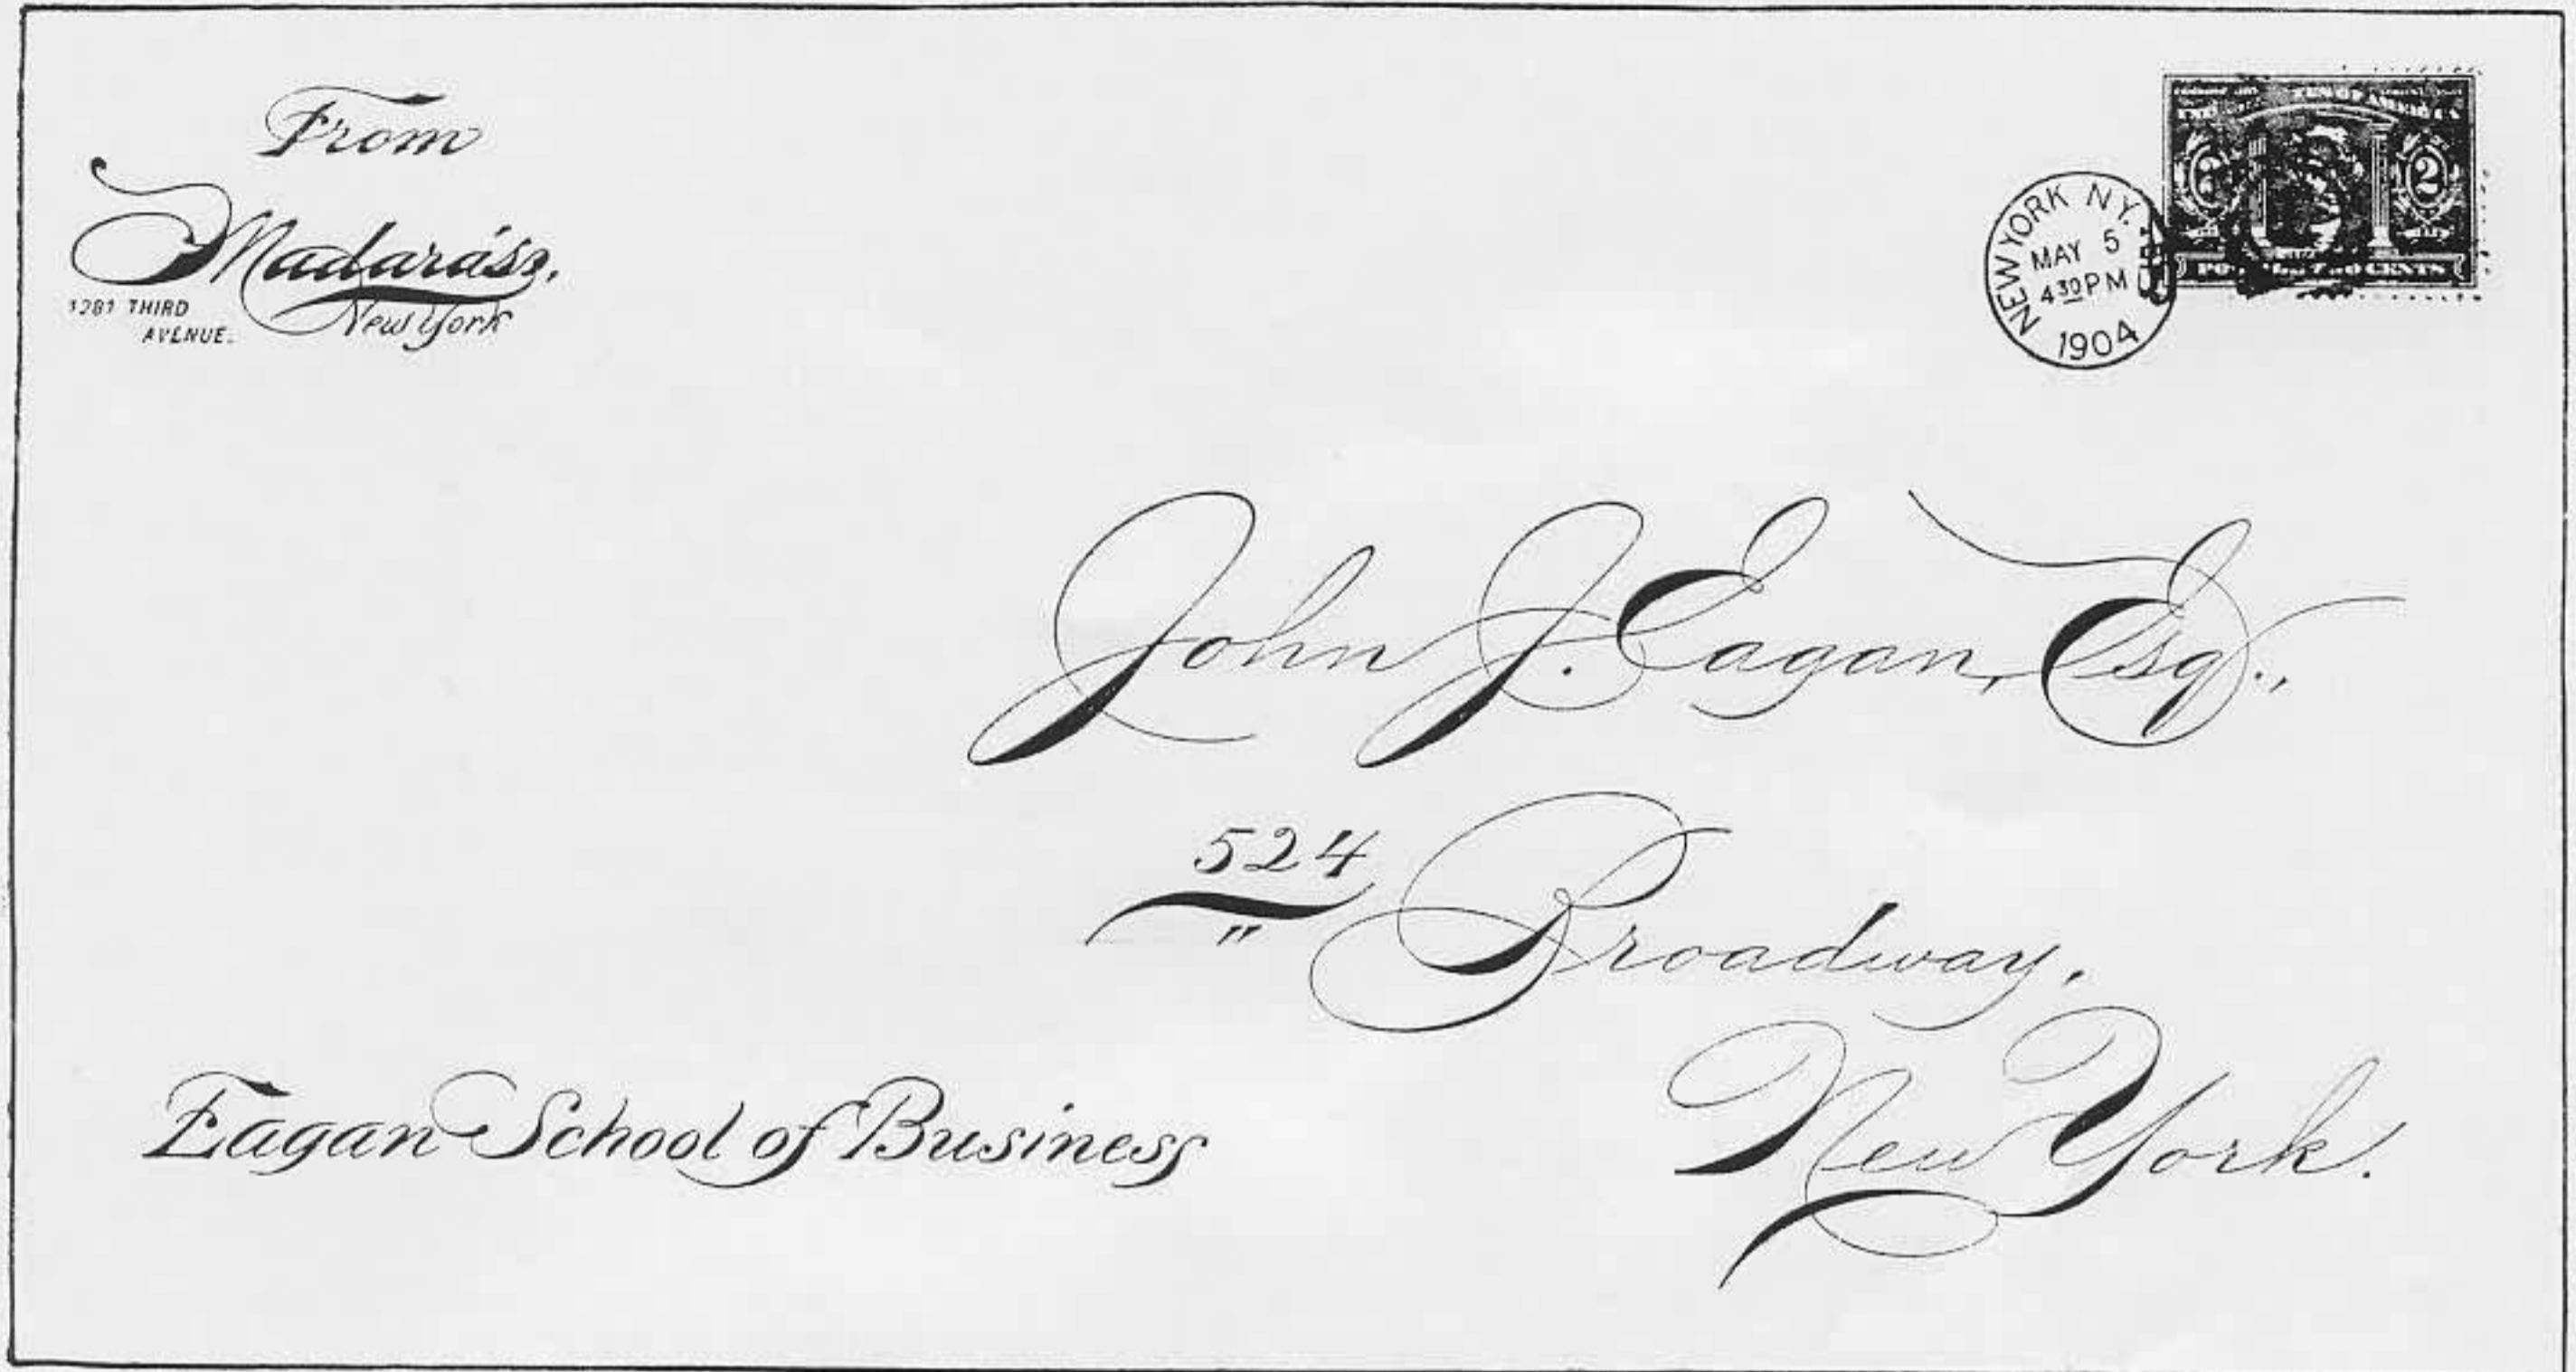 From
Madarász,
1281 THIRD
AVENUE.
New York
NEW YORK N.Y.
MAY 5
4 30 PM
1904
2
CENTS
John J. Eagan, Esq.,
524
"
Broadway,
New York.
Eagan School of Business